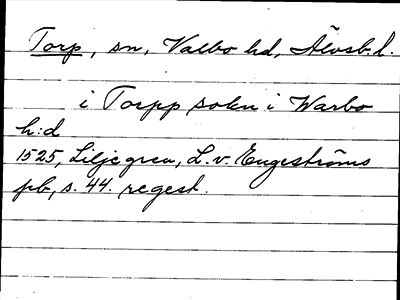 Torp, sn, Valbo hd, Älvsb. l.
i Torpp sokn i Warbo
h:d
1525, Liljegren, L. v. Engeströms
pb, s. 44. regest.